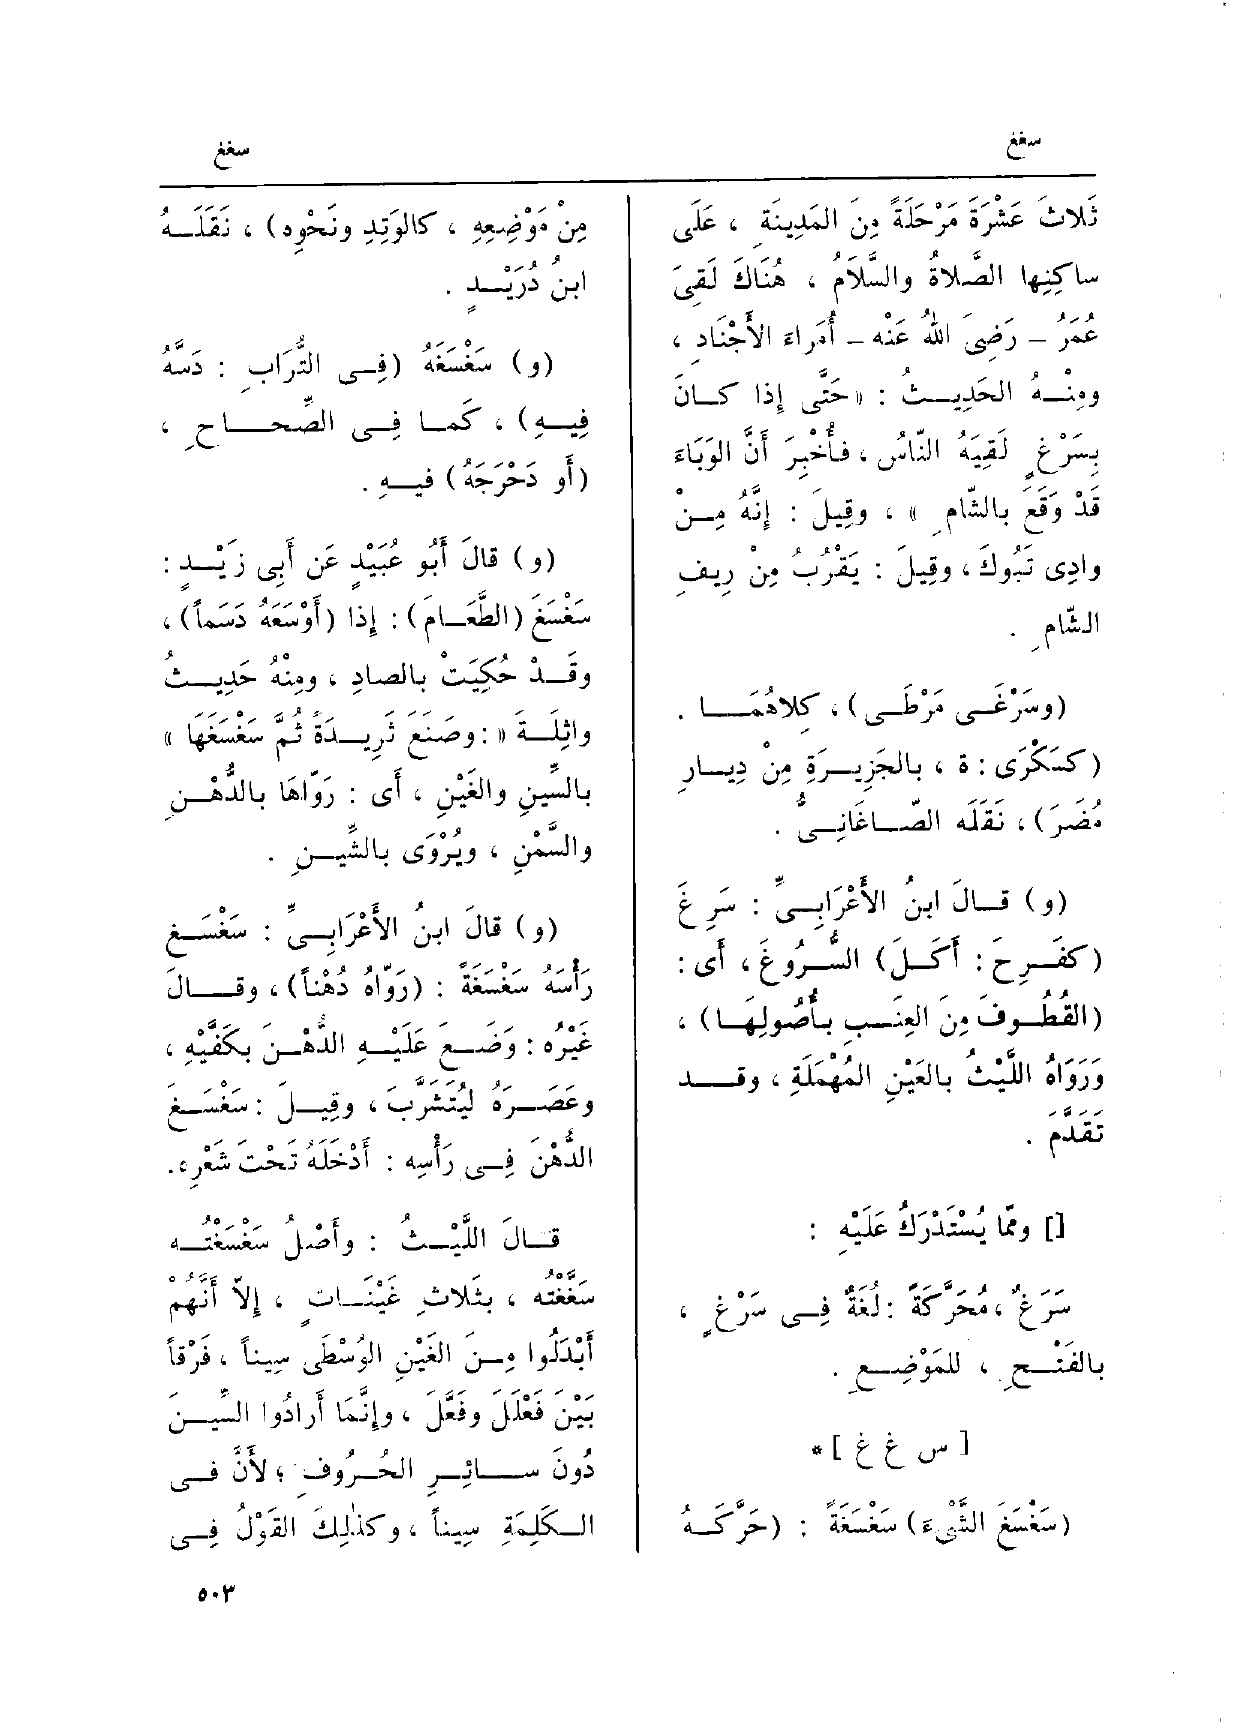 سغغ
سغغ
ثَلاثَ عَشْرَةَ مَرْحَلَةً مِنَ المَدِينَةِ ، عَلَى
ساكِنِها الصَّلاةُ والسَّلَامُ ، هُنَاكَ لَقِىَ
عُمَرُ – رَضِىَ اللهُ عَنْه – أُمَراءَ الأَجْنَادِ ،
ومِنْـهُ الحَدِيـثُ : «حَتَّى إِذا كـانَ
بِسَرْغٍ لَقِيَهُ النَّاسُ ، فأُخْبِرَ أَنَّ الوَبَاءَ
قَدْ وَقَعَ بالشّامِ » ، وقِيلَ : إِنَّهُ مِـنْ
وادِى تَبُوكَ ، وقِيلَ : يَقْرُبُ مِنْ رِيفِ
الشّامِ .
(وسَرْغَـى مَرْطَـى) ، كِلاهُمَـا .
(كسَكْرَى : ة ، بالجَزِيـرَةِ مِنْ دِيـارِ
مُضَرَ) ، نَقَلَه الصّـاغَانِـىُّ .
(و) قـالَ ابنُ الأَعْرَابِـىِّ : سَرِغَ
(كفَـرِحَ : أَكَـلَ) السُّـرُوغَ ، أَى :
(القُطُـوفَ مِنَ العِنَـبِ بأُصُولِهَـا) ،
وَرَوَاهُ اللَّيْثُ بالعَيْنِ المُهْمَلَةِ ، وقـد
تَقَدَّمَ .
[] ومّا يُسْتَدْرَكُ عَلَيْهِ :
سَرَغٌ ، مُحَرَّكَةً : لُغَةٌ فِـى سَرْغٍ ،
بالفَتْـحِ ، للمَوْضِـعِ .
[ س غ غ ] *
(سَغْسَغَ الشَّىْءَ) سَغْسَغَةً : (حَرَّكَـهُ
مِنْ مَوْضِعِهِ ، كالوَتِدِ ونَحْوِه) ، نَقَلَـهُ
ابنُ دُرَيْـدٍ .
(و) سَغْسَغَهُ (فِـى التُّرَابِ : دَسَّهُ
فِيـهِ) ، كَمـا فِـى الصِّحـاحِ ،
(أَو دَحْرَجَهُ) فيـهِ .
(و) قالَ أَبُو عُبَيْدٍ عَن أَبِى زَيْـدٍ :
سَغْسَغَ (الطَّعَـامَ) : إِذا (أَوْسَعَهُ دَسَماً) ،
وقَـدْ حُكِيَتْ بالصادِ ، ومِنْهُ حَدِيـثُ
واثِلَـةَ « : وصَنَعَ ثَرِيـدَةً ثُمَّ سَغْسَغَها »
بالسِّينِ والغَيْنِ ، أَى : رَوّاهَا بالدُّهْـنِ
والسَّمْنِ ، ويُرْوَى بالشِّيـنِ .
(و) قالَ ابنُ الأَعْرَابِـىِّ : سَغْسَـغَ
رَأْسَهُ سَغْسَغَةً : (رَوّاهُ دُهْناً) ، وقـالَ
غَيْرُه : وَضَـعَ عَلَيْـهِ الدُّهْـنَ بكَفَّيْهِ ،
وعَصَـرَهُ لِيُتَشَرَّبَ ، وقِيـلَ : سَغْسَـغَ
الدُّهْنَ فِـى رَأْسِهِ : أَدْخَلَهُ تَحْتَ شَعْرِه.
قـالَ اللَّيْـثُ : وأَصْـلُ سَغْسَغْتُـه
سَغَّغْتُه ، بثَلاثِ غَيْنَـاتٍ ، إِلاّ أَنَّهُمْ
أَبْدَلُوا مِـنَ الغَيْنِ الوُسْطَى سِيناً ، فَرْقاً
بَيْنَ فَعْلَلَ وفَعَّلَ ، وإِنَّمَا أَرادُوا السِّيـنَ
دُونَ سـائِـرِ الحُـرُوفِ ؛ لأَنَّ فـى
الـكَلِمَةِ سِيناً ، وكذلِكَ القَوْلُ فِـى
٥٠٣